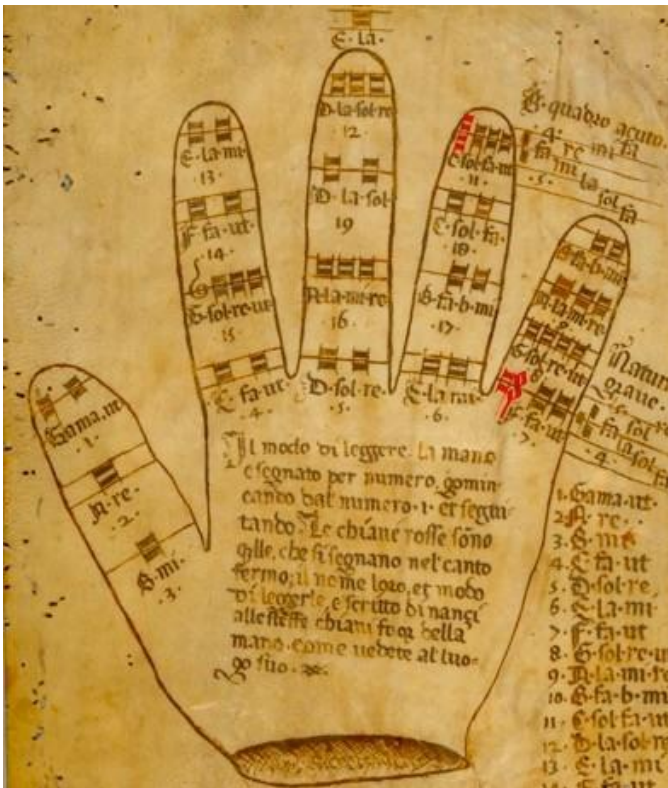 E · la ·
D · la · sol · re
12 ·
D · la · sol ·
19
A · la · mi · re
· 16 ·
D · sol · re ·
· 5 ·
E · la · mi ·
· 13 ·
F · fa · ut
· 14 ·
G · sol · re · ut
· 15 ·
C · fa · ut
· 4 ·
C · sol · fa · ut
· 11 ·
C · sol · fa ·
· 18 ·
B · fa · b · mi
· 17 ·
E · la · mi
· 6 ·
B · fa · b · mi
A · la · mi · re
9
G · sol · re · ut
8
F · fa · ut
· 7 ·
Gama · ut
· 1 ·
A · re ·
· 2 ·
B · mi ·
· 3 ·
B · quadro acuto ·
· 4 · re mi fa
fa mi la sol fa
· 5 ·
Natur
grave
fa sol
la sol fa
· 4 ·
Il modo di leggere la mano
e segnato per numero, comin
cando dal numero · 1 · et segui
tando. Le chiave rosse sono
qlle, che si segnano nel canto
fermo; il nome loro, et modo
di leggerle, e scritto dinançi
alle stesse chiavi for della
mano, come vedete al luo-
go suo ·
1 · Gama · ut ·
2 A · re · ·
3 · B · mi
4 · C · fa · ut
5 · D · sol · re ·
6 · E · la · mi ·
7 · F · fa · ut
8 · G · sol · re · u
9 · A · la · mi · re
10 · B · fa · b · mi
11 · C · sol · fa · ut
12 · D · la · sol · re
13 · E · la · mi
14 · F · fa · ut